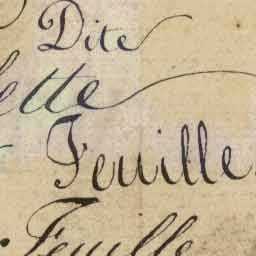 Dite
ette
Feuille
Feuille